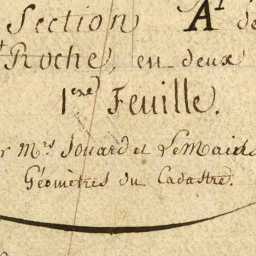 Section A1 de
Roche, en deux
1ere Feuille.
r Mrs Jouard et LeMaire
Géomètres du Cadastre.